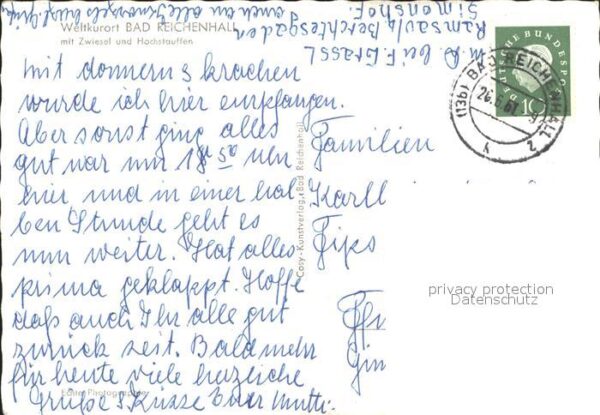 auch an alle
m. A. bei F. Grassl
Ramsau b/ Berchtesgaden
Simonshof.
Weltkurort BAD REICHENHALL
mit Zwiesel und Hochstaufen
DEUTSCHE BUNDESPOST
10
(13b) BAD REICHENHALL 2
26.6.61
Mit donnern & krachen
wurde ich hier empfangen.
Aber sonst ging alles
gut war um 18 50 Uhr
hier und in einer hal
ben Stunde geht es
nun weiter. Hat alles
prima geklappt. Hoffe
daß auch Ihr alle gut
zurück seit. Bald mehr
für heute viele herzliche
Grüße & Küsse Euer Mutti.
Cosy-Kunstverlag, Bad Reichenhall
Familien
Karll
Fips
privacy protection
Datenschutz